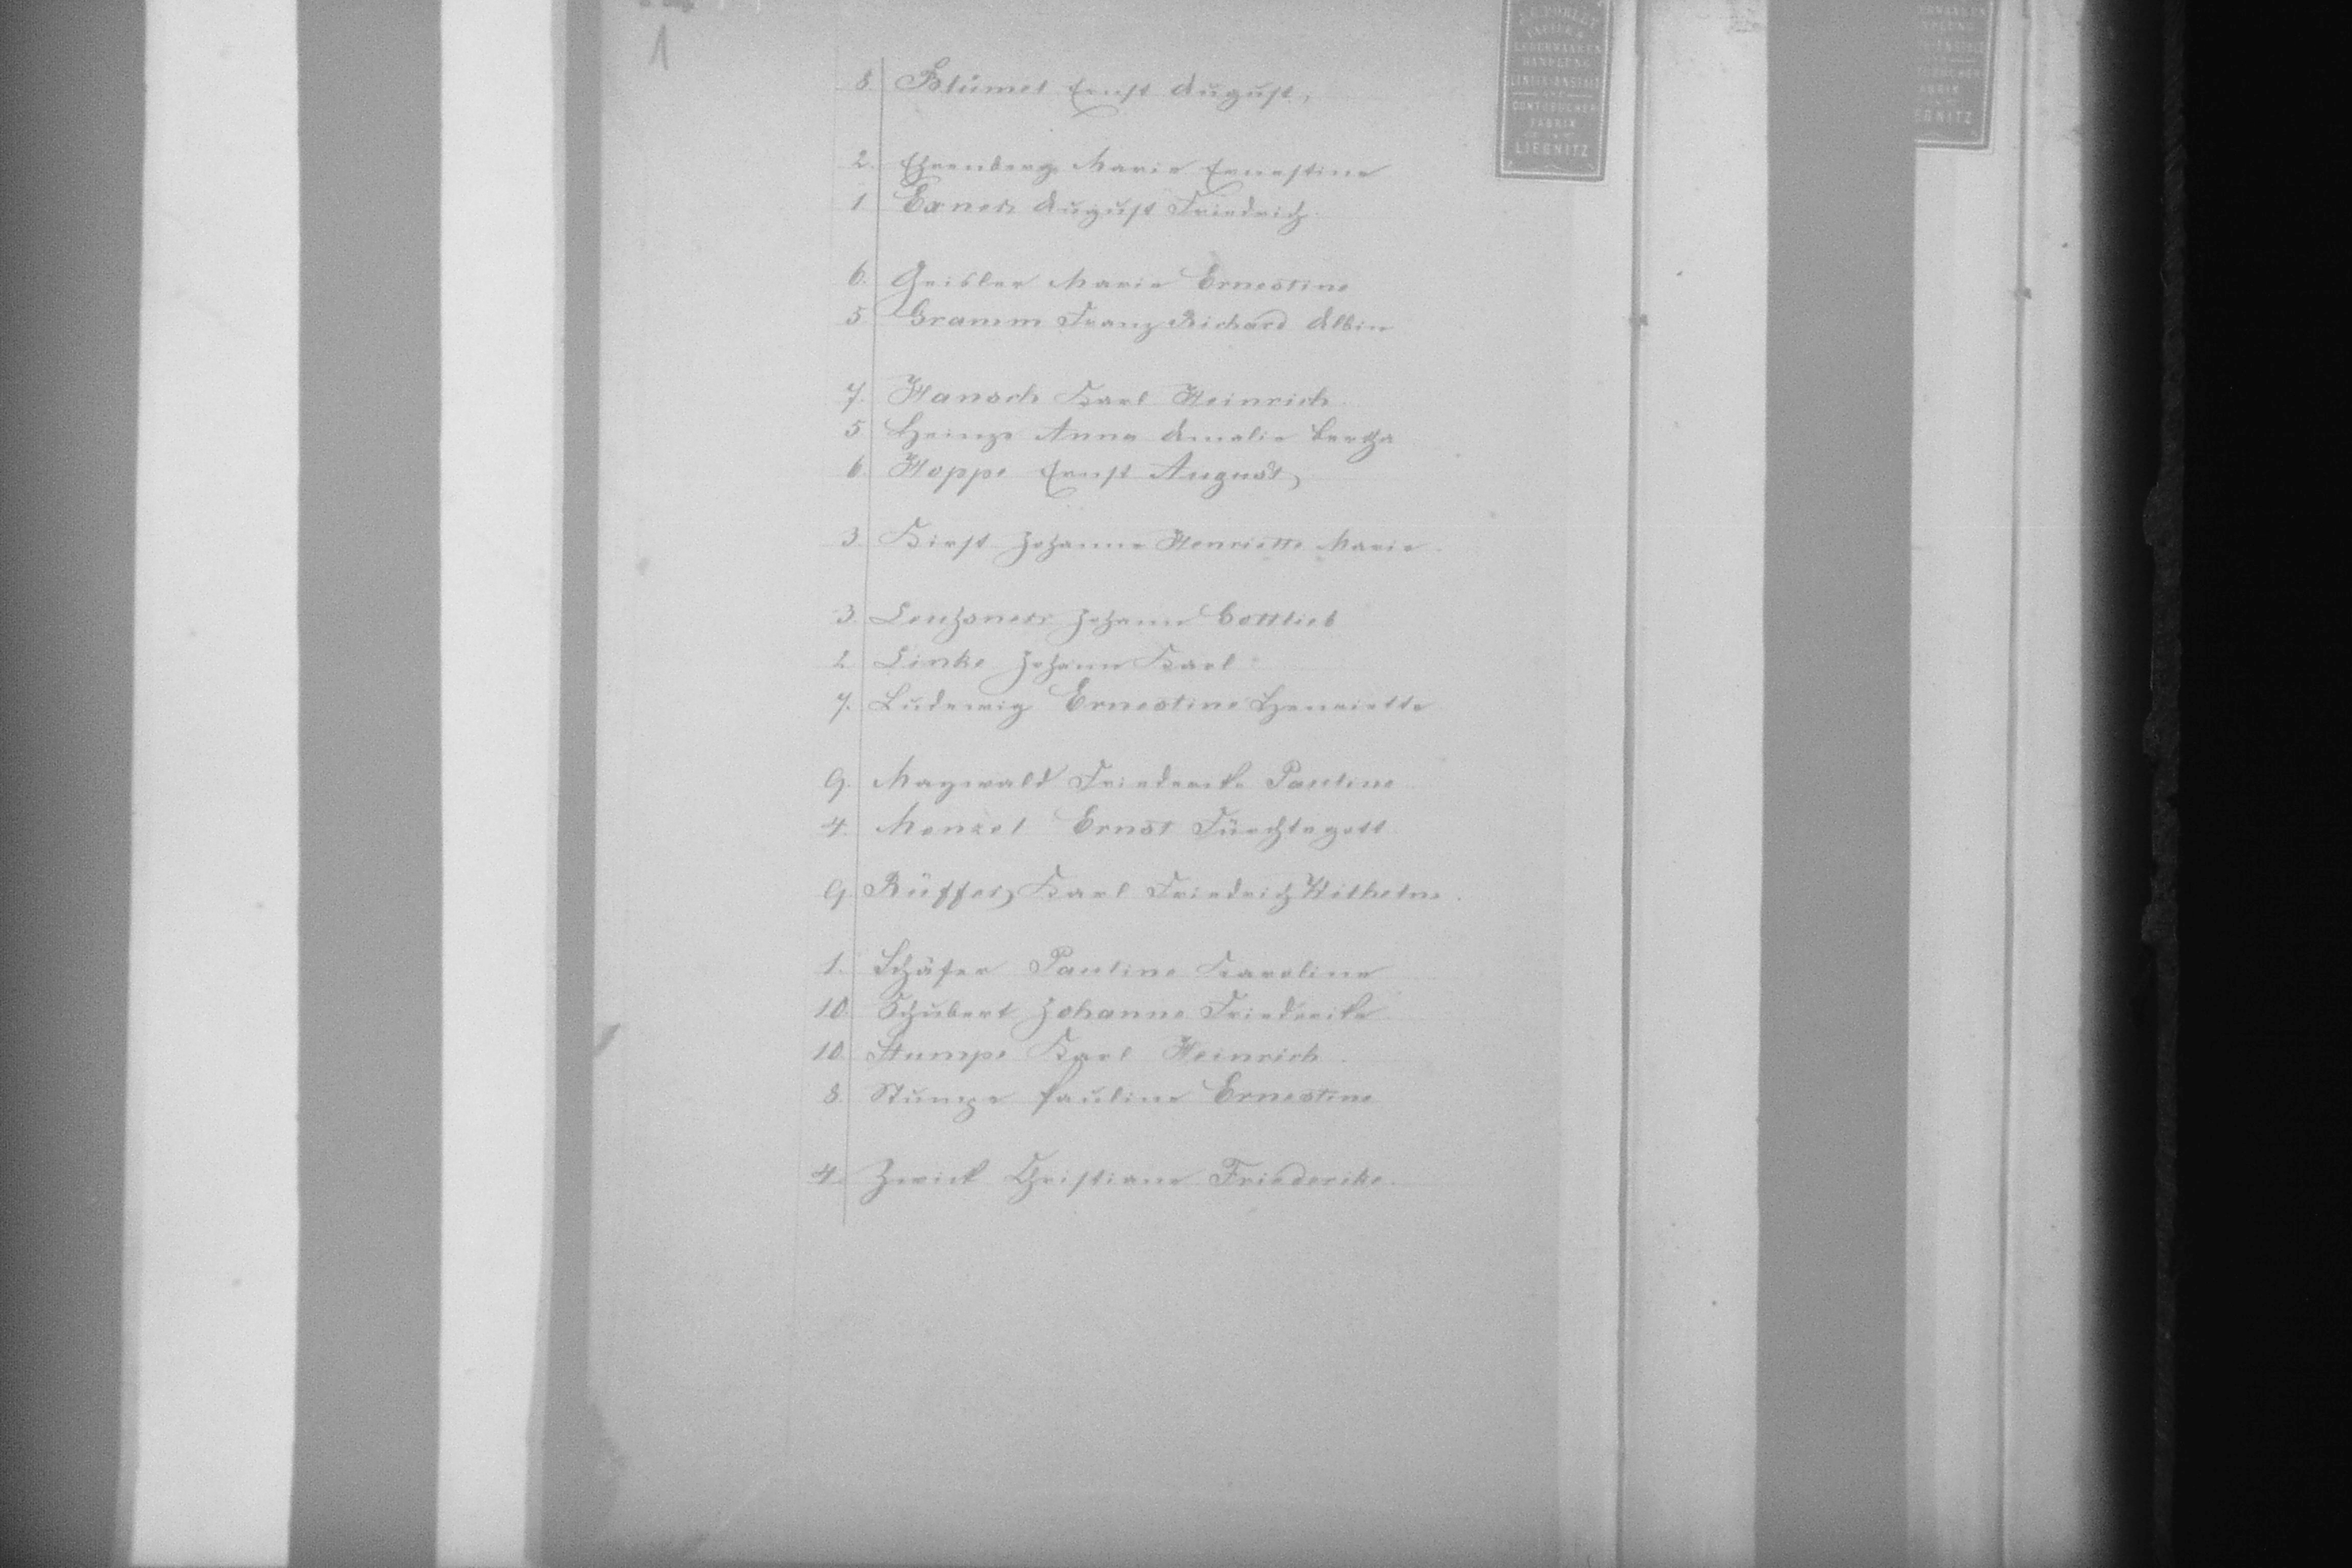 1
8. Blümel Ernst August,
2. Ehrenberg Marie Ernestine
1. Exner August Friedrich.
6. Geisler Marie Ernestine
5 Gramm Franz Richard Albin
7. Hansch Karl Heinrich.
5 Heinze Anna Amalie Bertha
6. Hoppe Ernst August,
3. Hirst Johanne Henriette Marie.
3. Johann Gottlieb
2 Linke Johann Karl
7. Ludewig Ernestine Henriette
9. Maywald Friederike Pauline
4. Menzel Ernst Fürchtegott.
9. Rüffer, Karl Friedrich Wilhelm.
1. Schäfer Pauline Karoline
10. Schubert Johanne Friederike
10. Stumpe Karl Heinrich.
8. Stumpe Pauline Ernestine
4. Zwick Christiane Friedericke.
LEDERWAAREN
HANDLUNG
LINIIR-ANSTALT
UND
CONTOBÜCHER
FABRIK
IN
LIEGNITZ